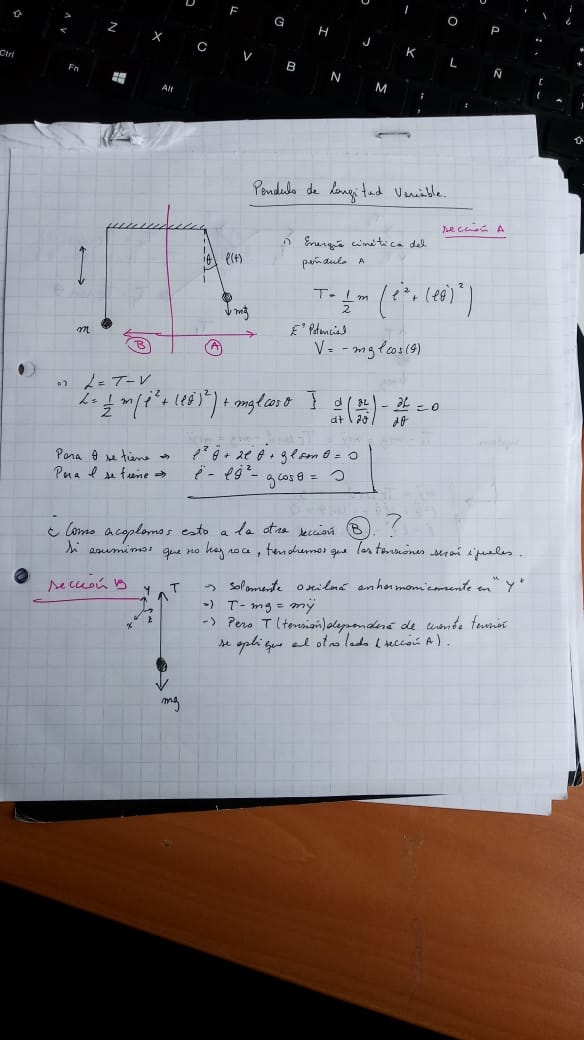 D F G H I O P
Z X C V J K L Ñ
B N M
Ctrl Fn Alt
Pendulo de Longitud Variable.
sección A
Energia cinética del
péndulo A
T = 1/2 m (l̇² + (lθ̇)²)
θ l(t)
mg
m
B A
Eª Potencial
V = -mg l cos(θ)
L = T - V
L = 1/2 m (l̇² + (lθ̇)²) + mg l cos θ } d/dt (∂L/∂θ̇) - ∂L/∂θ = 0
Para θ se tiene ⇒ l² θ̈ + 2l̇ θ̇ + gl sen θ = 0
Para l se tiene ⇒ l̈ - lθ̇² - g cos θ = 0
¿ Como acoplamos esto a la otra sección B. ?
Si asumimos que no hay roce, tendremos que las tensiones serán iguales.
sección B
y T
x z
mg
→ Solamente oscilará anharmonicamente en "Y"
→ T - mg = mÿ
→ Pero T (tensión) dependerá de cuanta tensión
se aplique al otro lado (sección A).